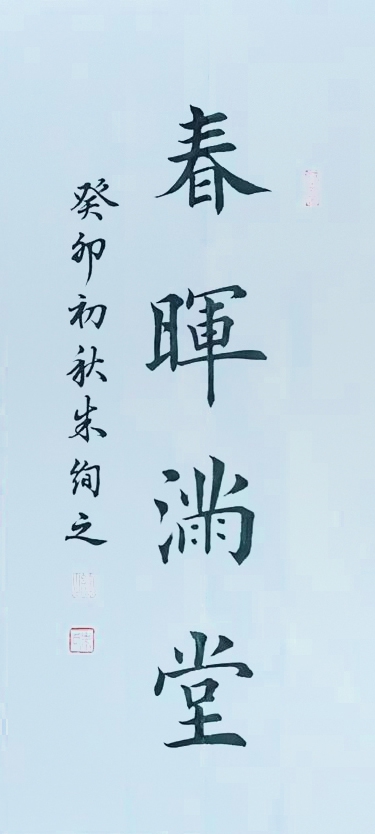 春暉滿堂
癸卯初秋朱絢之